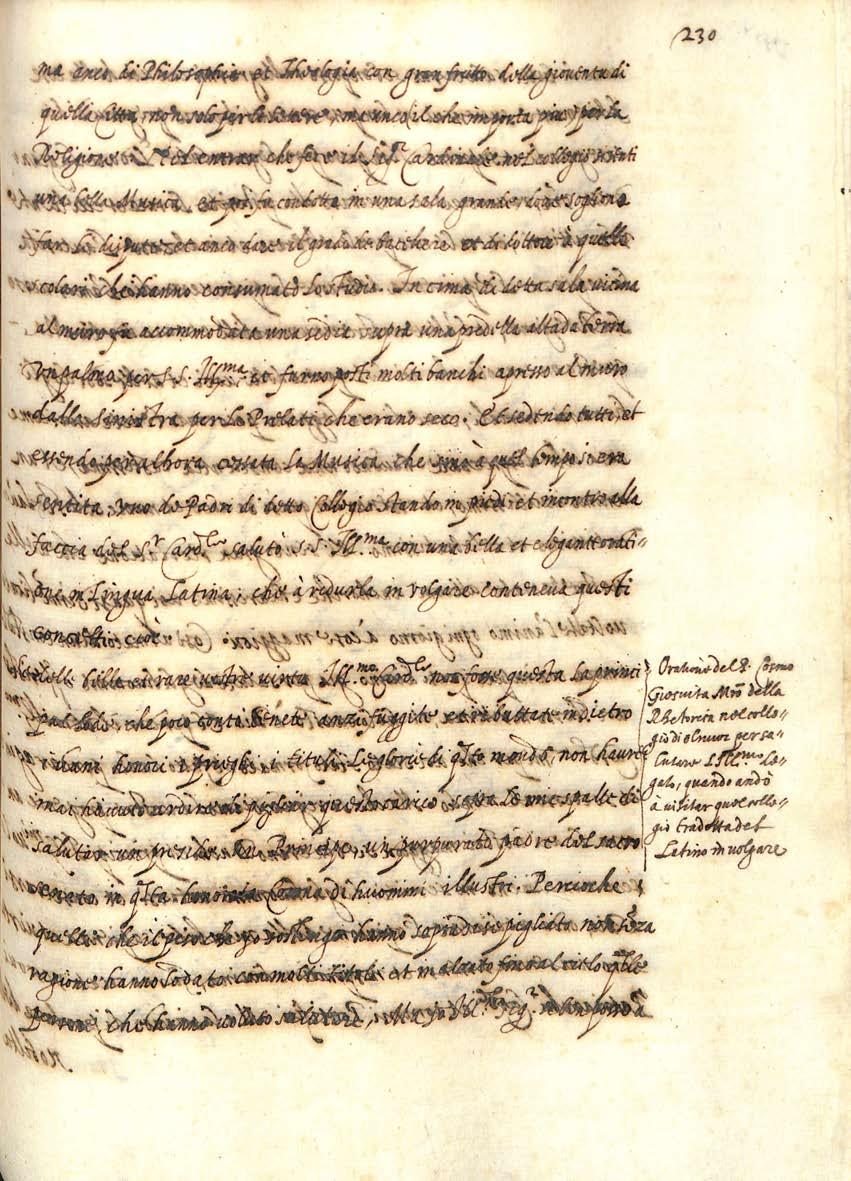 230
ma anco di Philosophia et Theologia con gran frutto della gioventu di
quella Citta, non solo per le lettere, ma anco (il che importa piu) per la
Religione. Nel entrar che fece il Sig.r Cardinale nel collegio senti
una bella Musica, et poi fu condotta in una sala grande dove sogliono
far le dispute et anco dare il grado de bacchere et di dottori à quelli
scolari che hanno consumato lo studio. In cima di detta sala vicina
al muro fu accommodata una sedia supra una predella alta da terra
un palmo per S. S. Ill.ma et furno posti molti banchi apresso al muro
dalla sinistra per le Prelati che erano seco. Et sedendo tutti, et
essendo per alhora cessata la Musica che sino à quel tempo si era
sentita, uno de Padri di detto Collegio stando in piedi et incontro alla
faccia del S.r Card.le salutò S. S. Ill.ma con una bella et elegante orati=
one in Lingua Latina, che à ridurla in volgare conteneva questi
concetti cioè
delle belle et rare vostre virtu Ill.mo Card.le non fosse questa la princi
pal lode, che poco conto tenete anzi fuggite et ributtate indietro
i vani honori i prieghi, i tituli, le glorie di q.sto mondo, non haurei
mai havuto ardire di pigliar questo carico sopra le mie spalle di
salutar un preside, un Principe, un purpurato padre del sacro
senato in q.sta honorata Corona di huomini illustri. Percioche
quelli che il peso che io sostengo hanno sopra di se pigliato non senza
ragione hanno lodato con molti titoli et inalzato fino al cielo q.lle
persone, che hanno voluto salutare, Ma io Ill.mo Sig.r
Nobilta
Oratione del P. Cosmo
Giesuita Mro della
Rhetorica nel colle=
gio di olmuz per sa=
lutare S. Ill.mo Le=
gato, quando andò
à visitar quel colle=
gio tradotta del
Latino in volgare